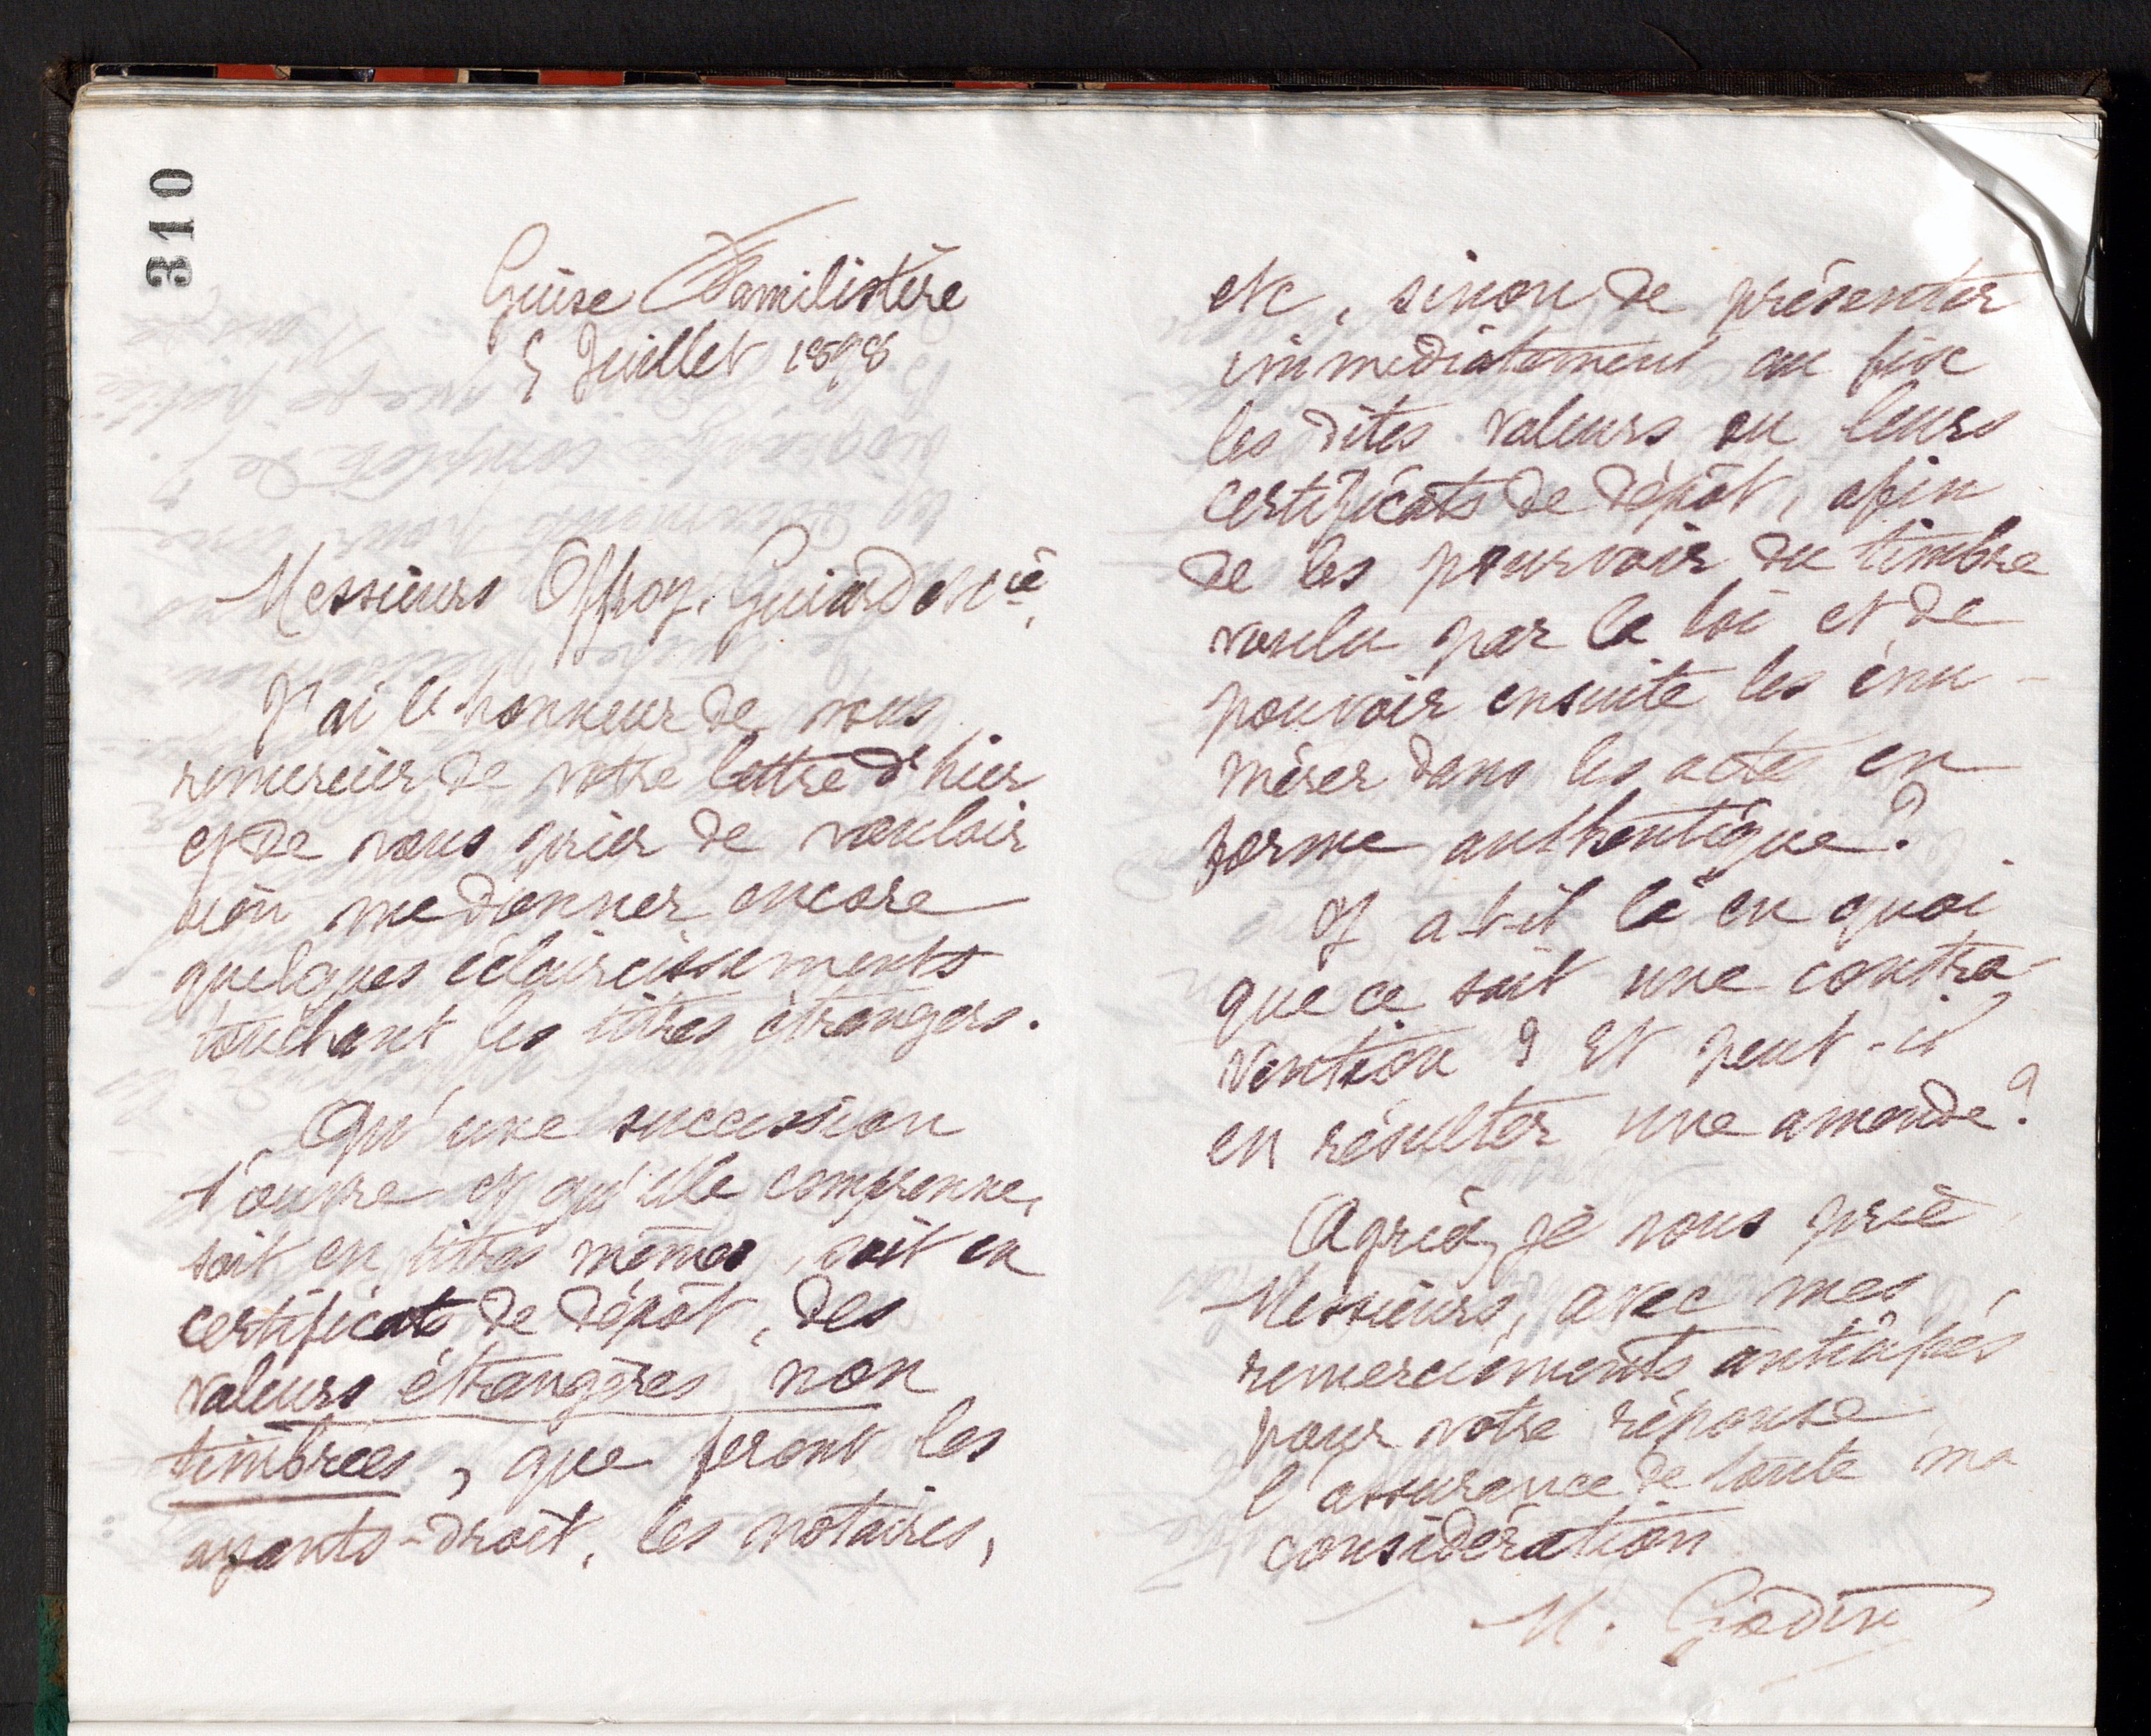 310
Guise Familistère
5 Juillet 1898
Messieurs Offroy, Guiard et Cie,
J'ai l'honneur de vous
remercier de votre lettre d'hier
et de vous prier de vouloir
bien me donner encore
quelques éclaircissements
touchant les titres étrangers.
Qu'une succession
s'ouvre et qu'elle comprenne,
soit en titres mêmes, soit en
certificats de dépôt, des
valeurs étrangères non
timbrées, que feront les
ayants-droit, les notaires,
etc, sinon de présenter
immediatement au fisc
les dites valeurs ou leurs
certificats de dépôt, afin
de les pourvoir du timbre
voulu par la loi et de
pouvoir ensuite les énu-
mérer dans les actes en
forme authentique?
Y a-t-il là en quoi
que ce soit une contra-
vention? Et peut-il
en résulter une amende?
Agréez, je vous prie,
Messieurs, avec mes
remerciements anticipés
pour votre réponse
l'assurance de toute ma
considération
M. Godin